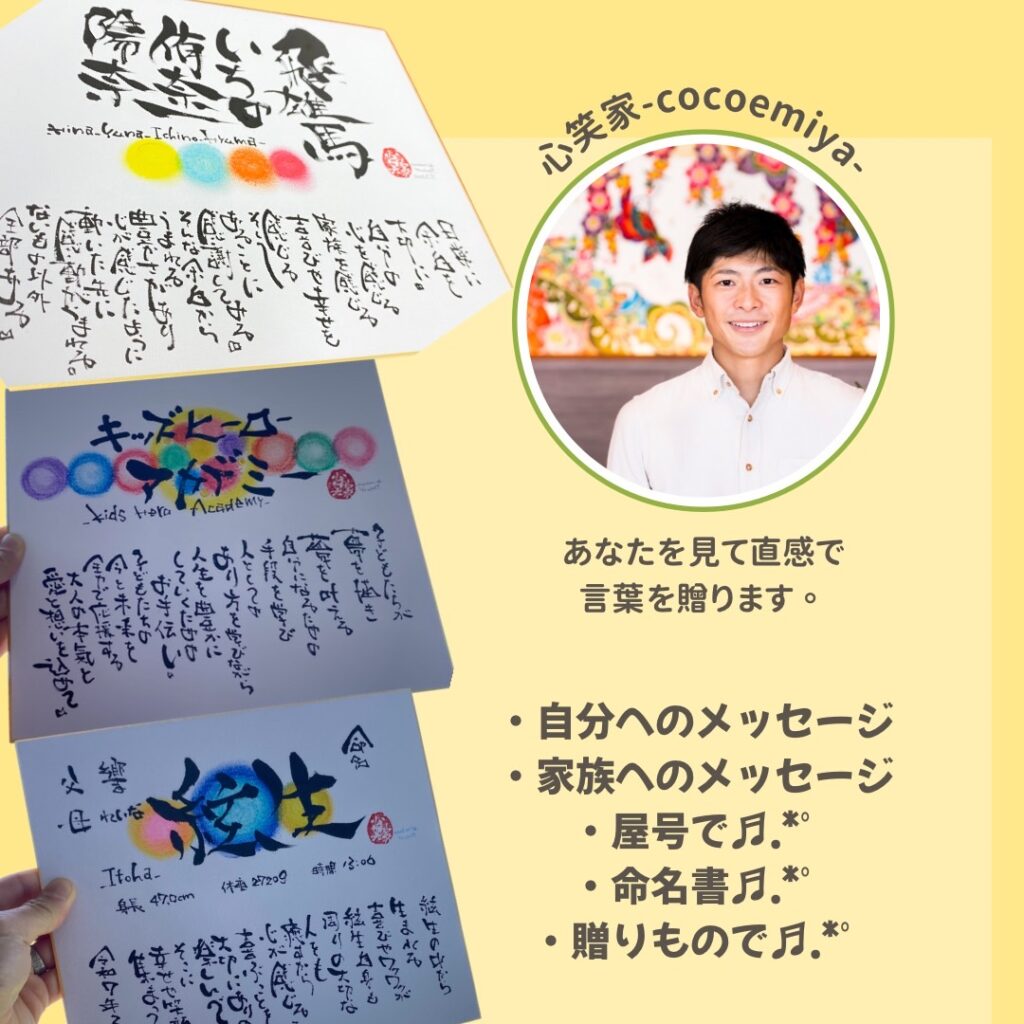 飛雄馬
いちの
侑奈
陽奈
日常に
余白を
大切に。
自分の
心を感じる
家族を感じる
喜びや幸せを
感じる
そして
あることに
感謝してみる。
そんな余白から
うまれる
豊かさがあり
じが感じたように
動いた先に
感動がうまれる。
ないもの以外
全部ある。
キッズヒーロー
アカデミー
-Kids Hero Academy-
子どもたちが
夢を描き
夢を叶える
自分になるための
手段を学び
人としての
あり方を学びながら
人生を豊かに
していくための
お手伝い。
子どもたちの
今と未来を
全力で応援する
大人の本気と
愛と想いを込めて。
命名
絃生
父 響
母 れいな
-Itoha-
身長 47.0cm 体重 2720g 時間 13:06
絃生の心から
生まれる
喜びやワクワクが
絃生自身も
周りの大切な
人をも
癒すだろう
じが感じる
喜ぶことを
大切にありの
楽しいで
そこに
幸せや笑顔
集まって
令和7年2
心笑家-cocoemiya-
あなたを見て直感で
言葉を贈ります。
・自分へのメッセージ
・家族へのメッセージ
・屋号で♬.*°
・命名書♬.*°
・贈りもので♬.*°